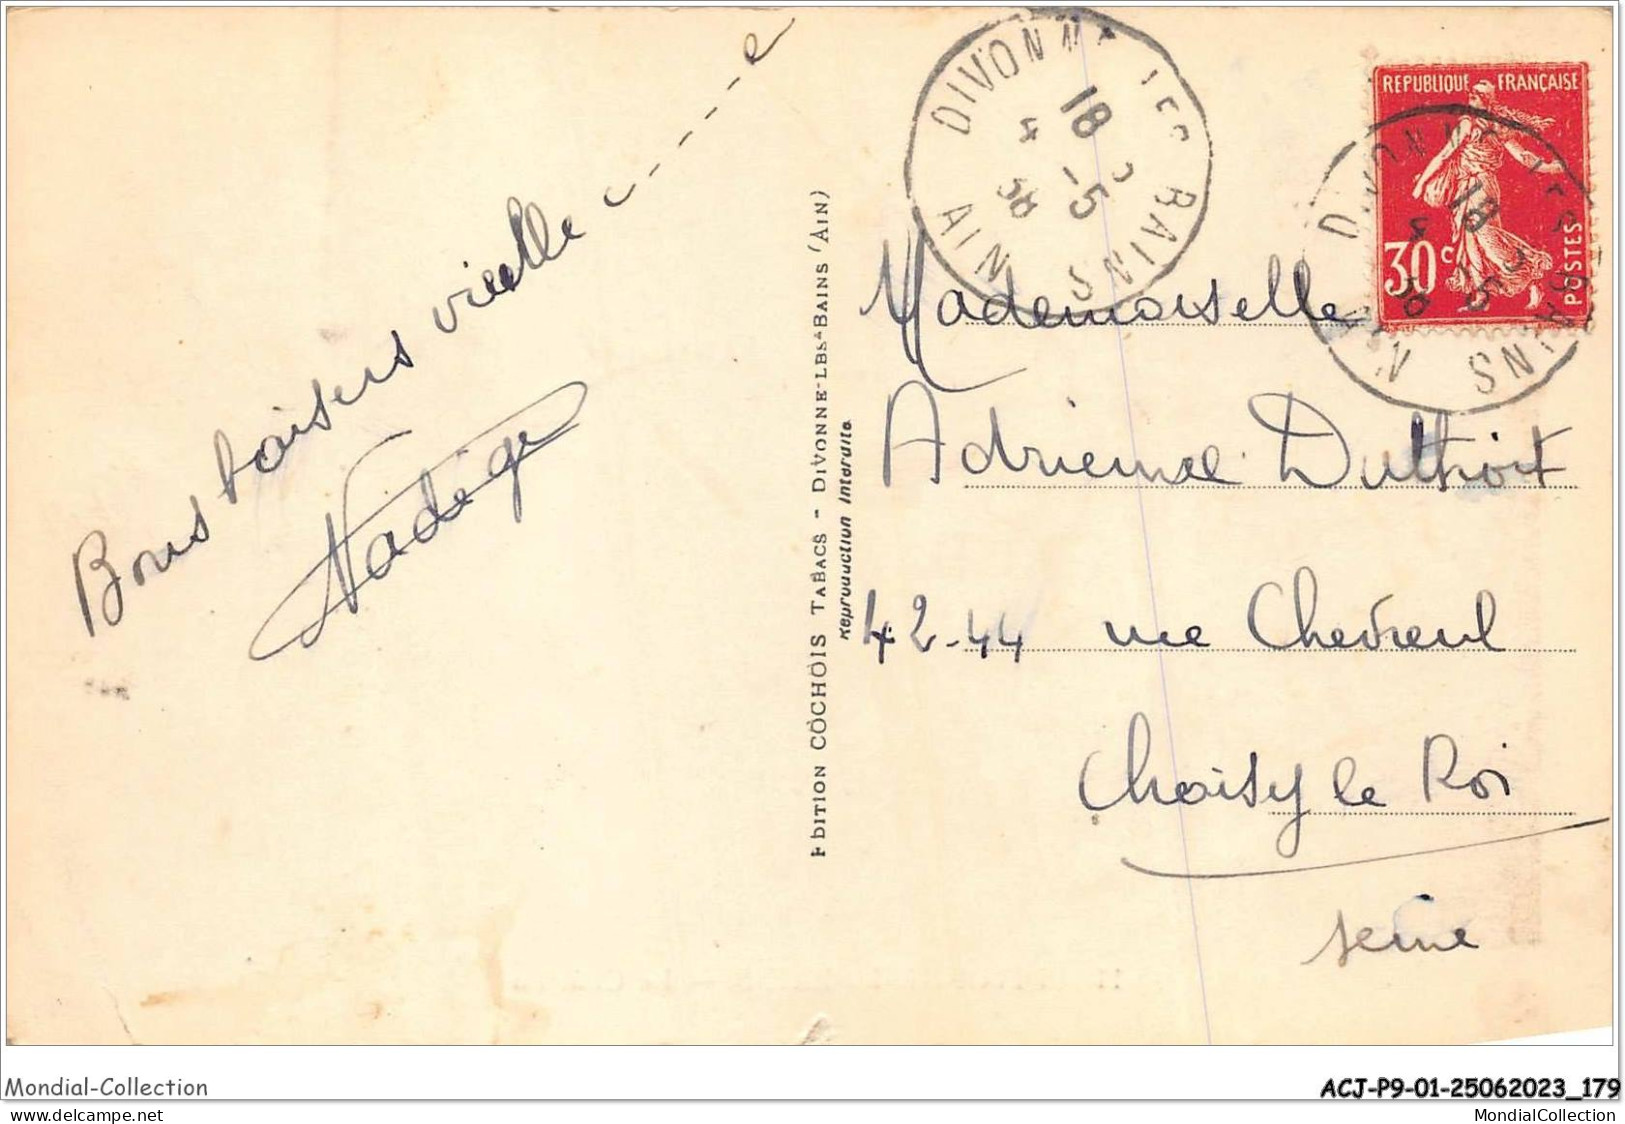 Bons baisers vieille
Nadège
Edition COCHOIS TABACS - DIVONNE-LES-BAINS (AIN)
Reproduction Interdite
DIVONNE les BAINS
18
4 -5
38
AIN
REPUBLIQUE FRANÇAISE
30c
POSTES
DIVONNE les BAINS
18
4 -5
38
AIN
Mademoiselle
Adrienne Duthoit
42-44 rue Chevreul
Choisy le Roi
Seine
Mondial-Collection
ACJ-P9-01-25062023_179
www.delcampe.net
MondialCollection